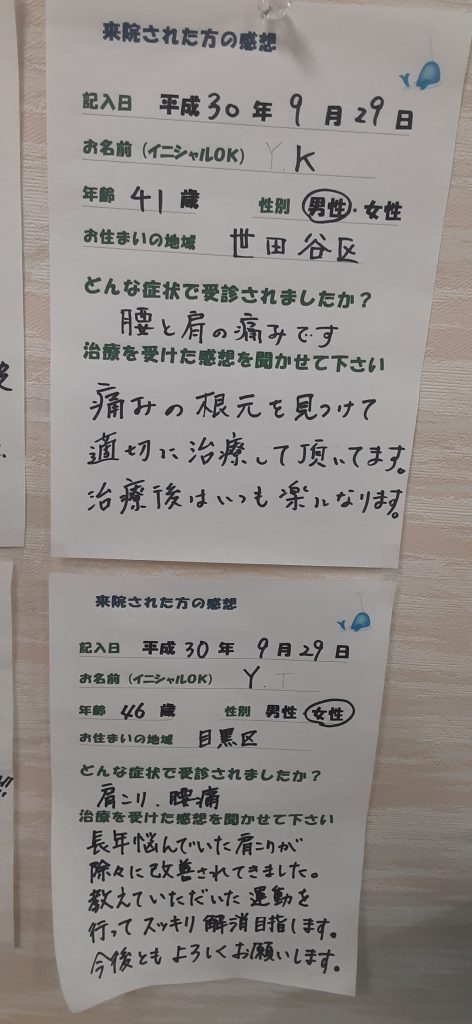 来院された方の感想
記入日 平成30年 9月29日
お名前(イニシャルOK) Y. K
年齢 41 歳 性別 男性・女性
お住まいの地域 世田谷区
どんな症状で受診されましたか?
腰と肩の痛みです
治療を受けた感想を聞かせて下さい
痛みの根元を見つけて
適切に治療して頂いてます。
治療後はいつも楽になります。
来院された方の感想
記入日 平成30年 9月29日
お名前(イニシャルOK) Y. I
年齢 46 歳 性別 男性 女性
お住まいの地域 目黒区
どんな症状で受診されましたか?
肩こり、腰痛
治療を受けた感想を聞かせて下さい
長年悩んでいた肩こりが
除々に改善されてきました。
教えていただいた運動を
行ってスッキリ解消目指します。
今後ともよろしくお願いします。